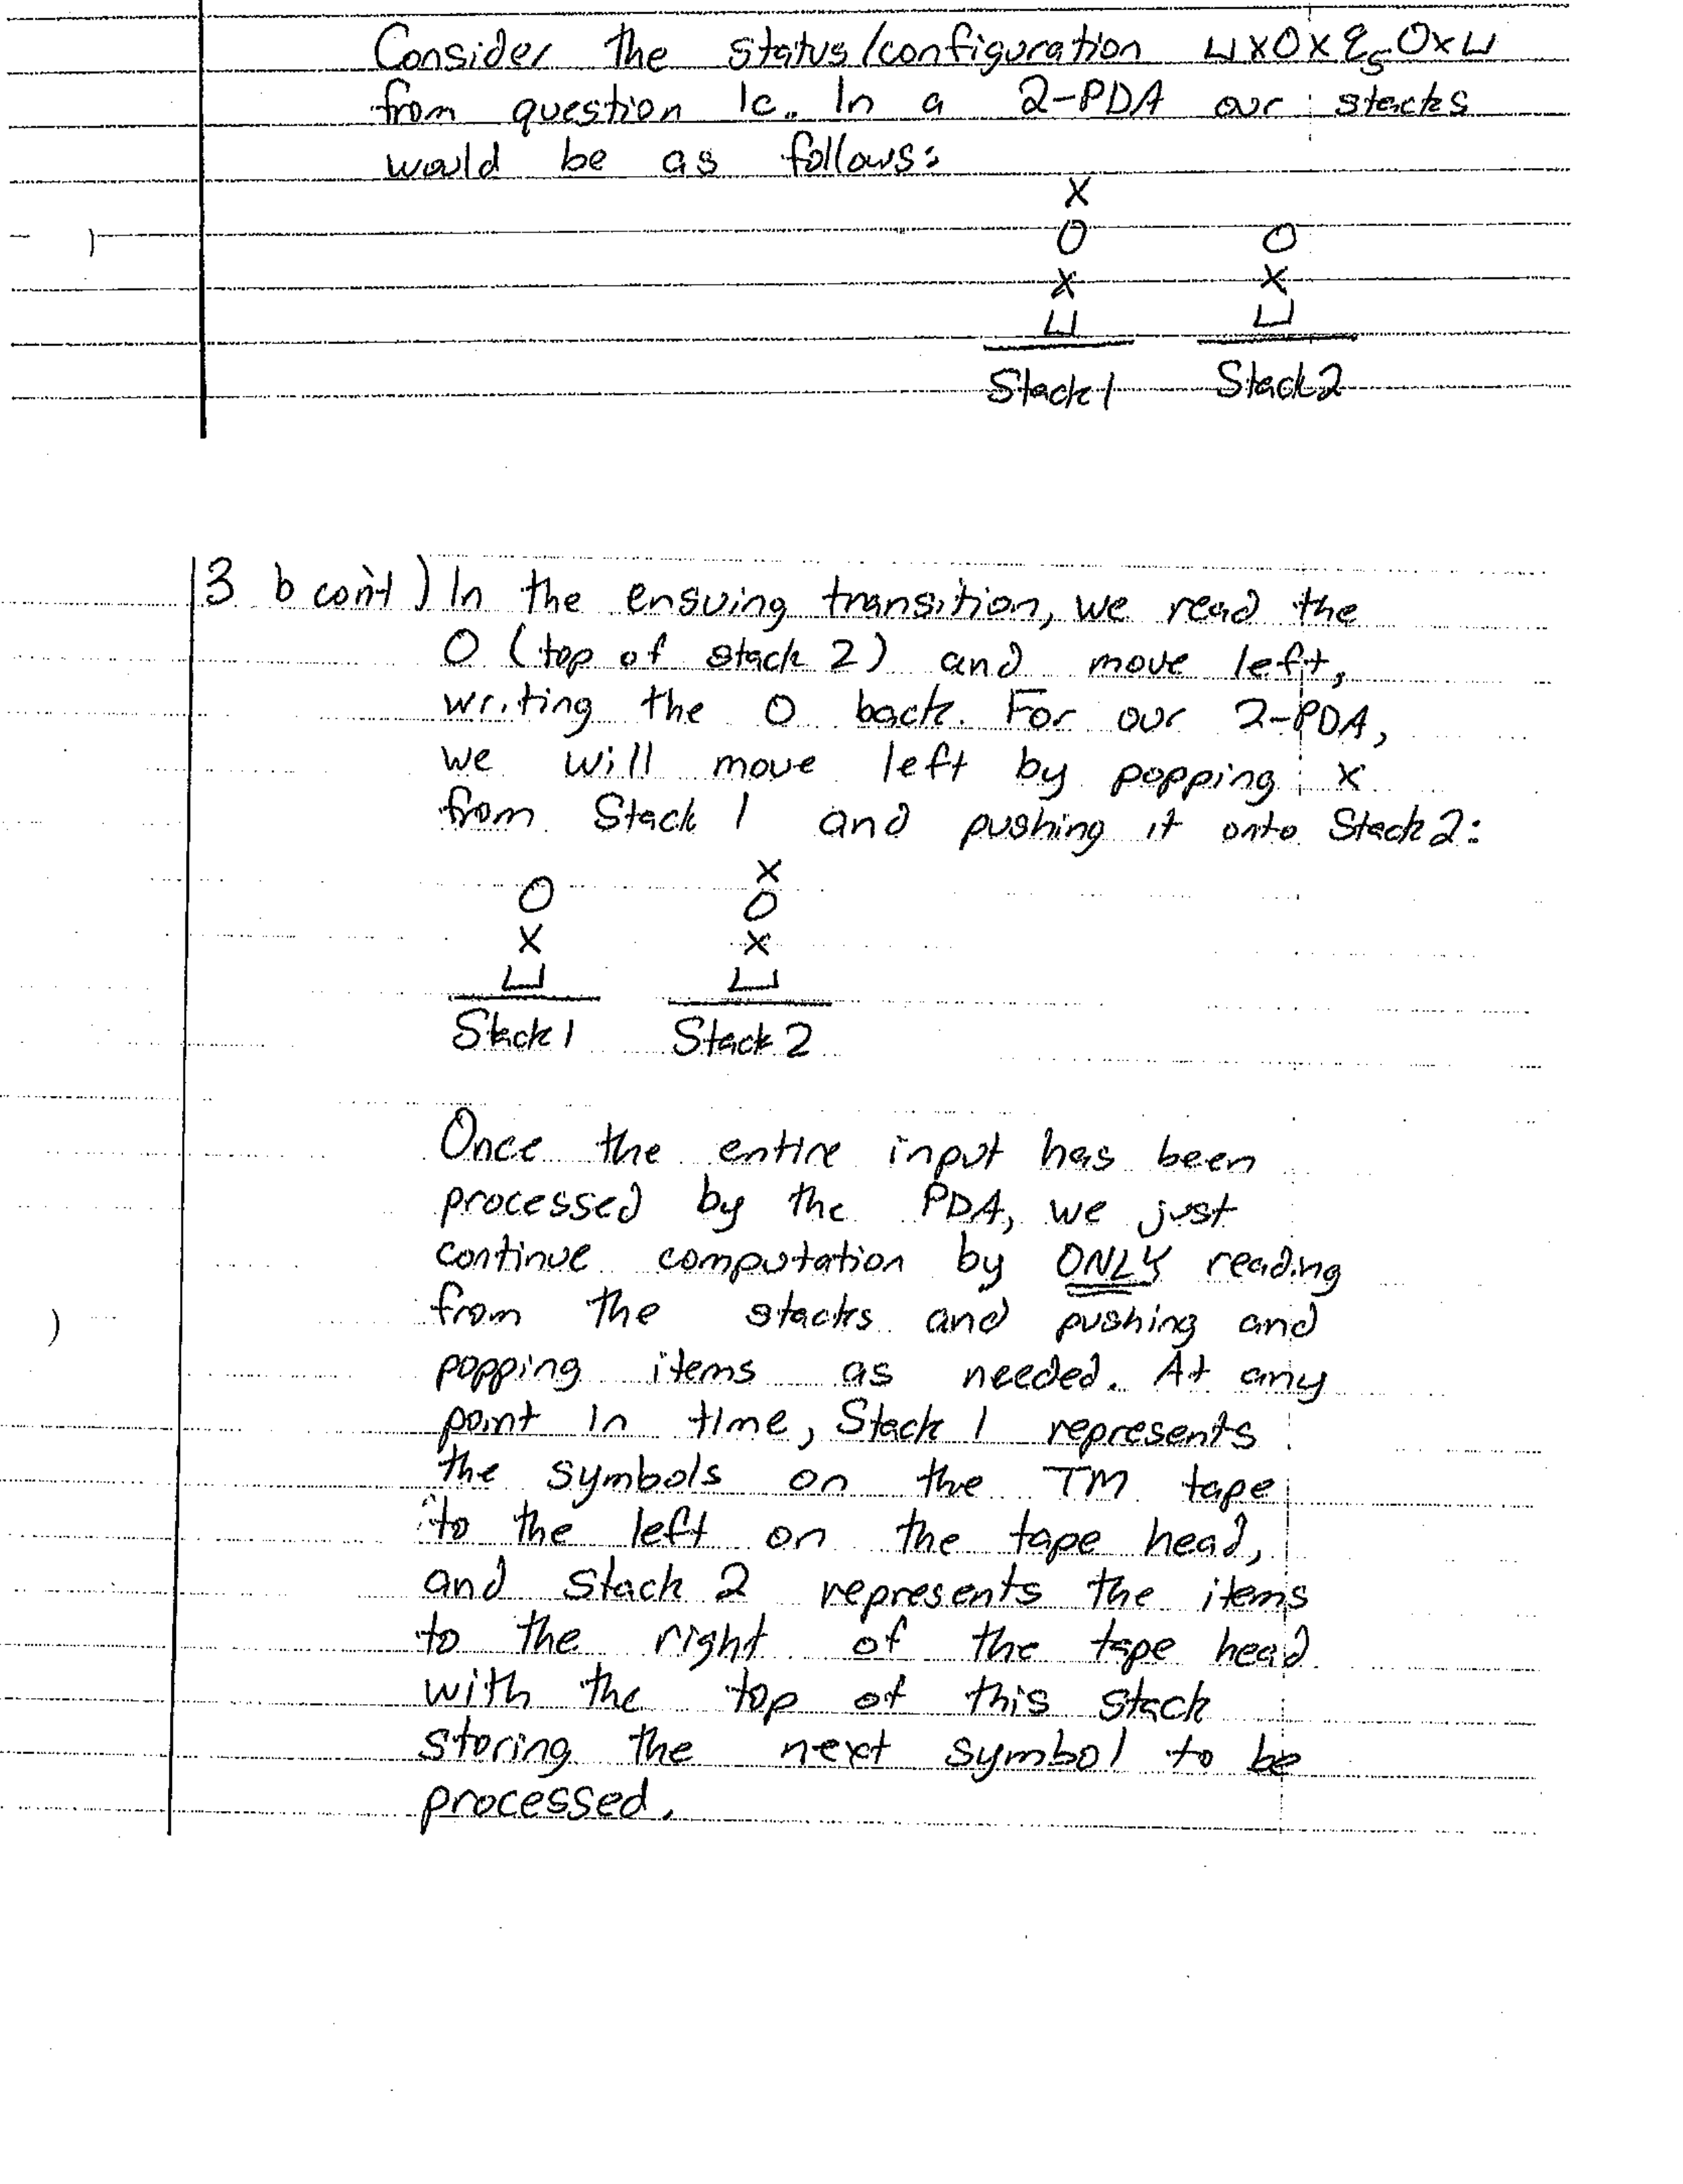 Consider the status/configuration ⊔x0xq₅0x⊔
from question 1c. In a 2-PDA our stacks
would be as follows:
x
0 0
x x
⊔ ⊔
Stack 1 Stack 2
3 b con't) In the ensuing transition, we read the
0 (top of stack 2) and move left,
writing the 0 back. For our 2-PDA,
we will move left by popping x
from Stack 1 and pushing it onto Stack 2:
x
0 0
x x
⊔ ⊔
Stack 1 Stack 2
Once the entire input has been
processed by the PDA, we just
continue computation by ONLY reading
from the stacks and pushing and
popping items as needed. At any
point in time, Stack 1 represents
the symbols on the TM tape
to the left on the tape head,
and Stack 2 represents the items
to the right of the tape head
with the top of this stack
storing the next symbol to be
processed.